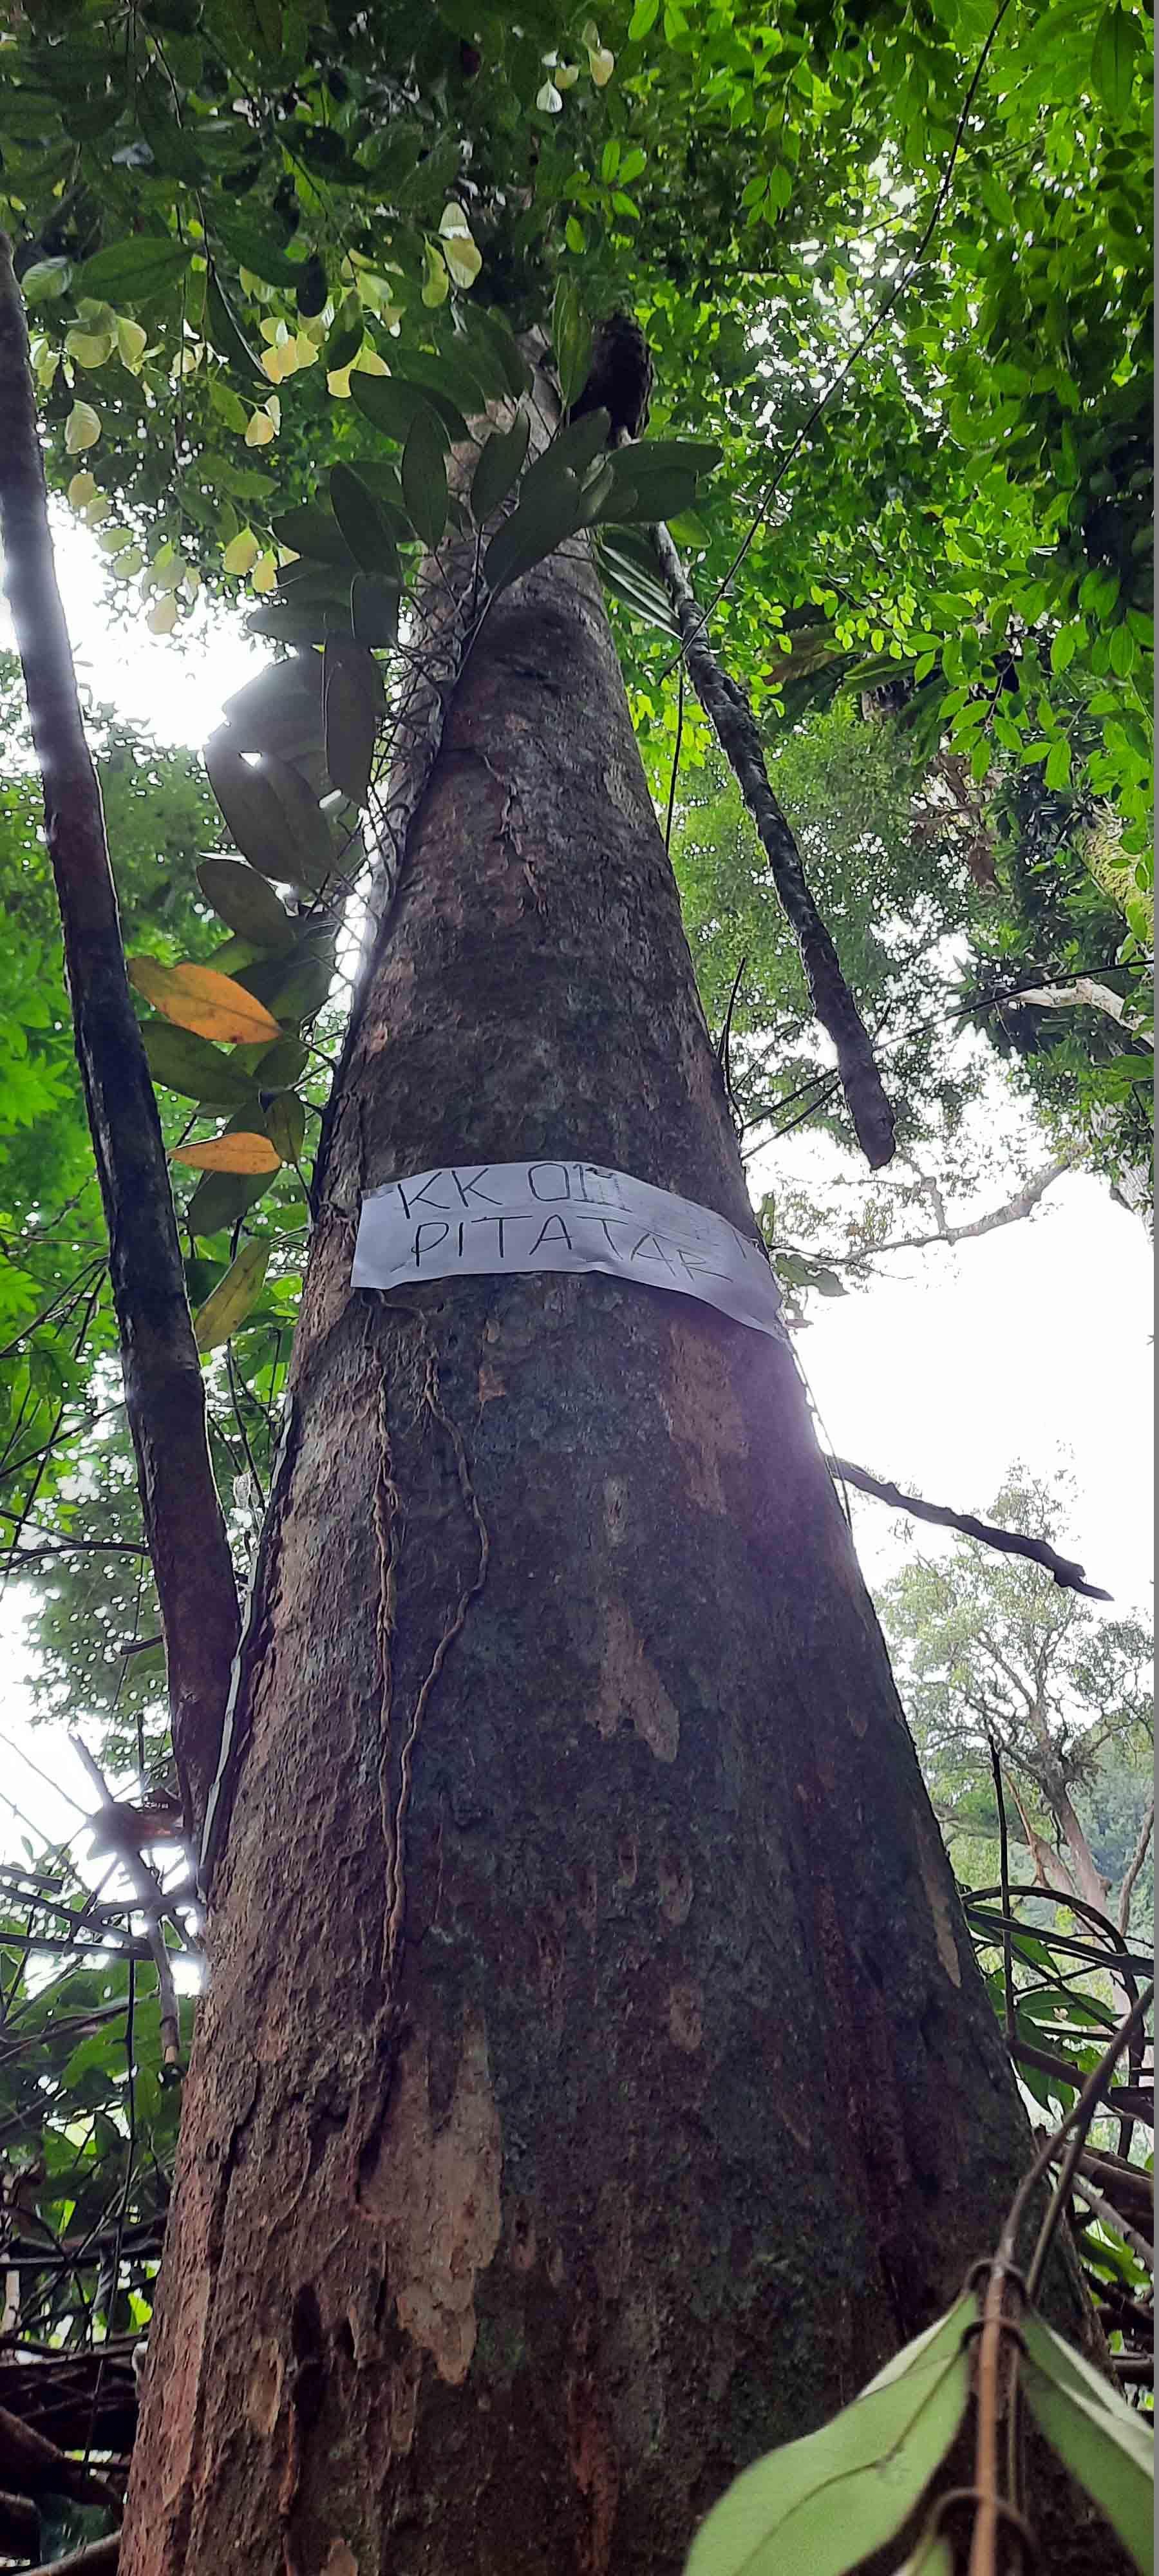 KK 011
PITATAR